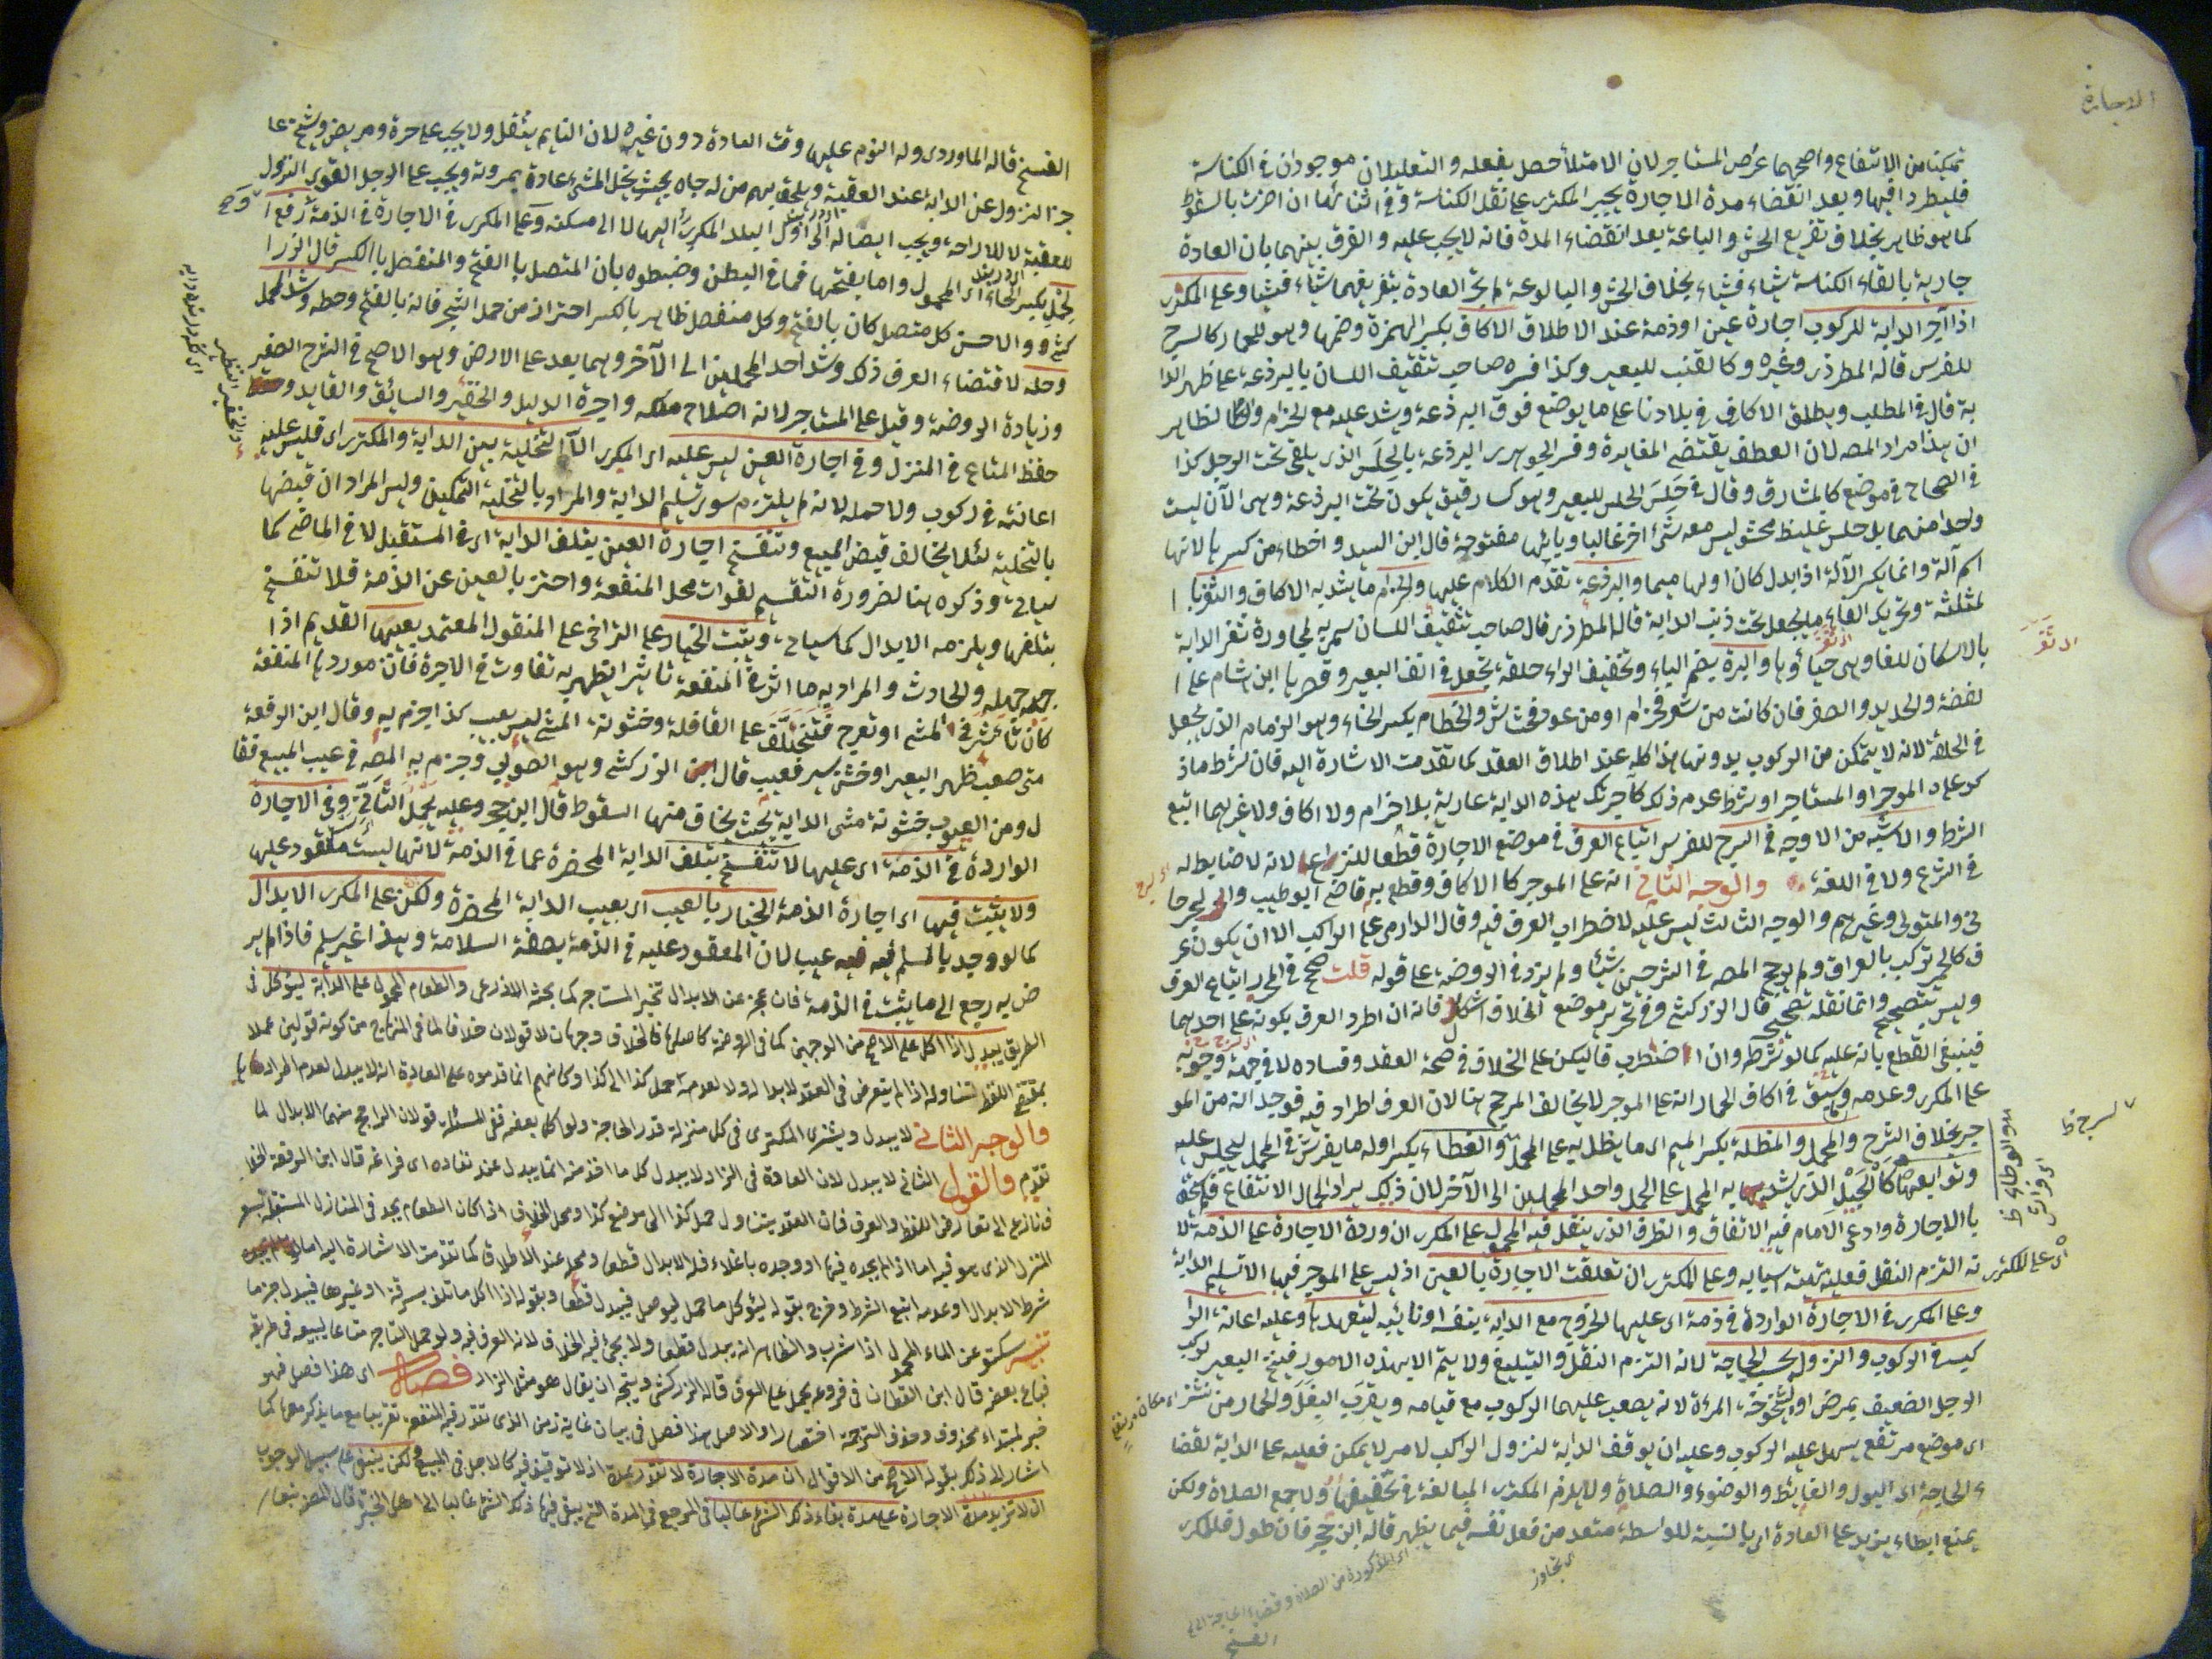 الاجارة
تمكينا من الانتفاع واصحهما على المستاجر لان الامتلأ حصل بفعله والتعليلان موجودان في الكناسة
فليطرد افيها وبعد انقضاء مدة الاجارة يجبر المكترى على نقل الكناسة وفي اثنائها ان اضرت بالسقوط
كما هو ظاهر بخلاف تفريغ الحش والبالوعة بعد انقضاء المدة فانه لا يجب عليه والفرق بينهما بان العادة
جارية بالقاء الكناسة شياء فشياء بخلاف الحش والبالوعة لم تجر العادة بتفريغهما شياء فشيا وعلى المكرى
اذا آجر الدابة للركوب اجارة عين او ذمة عند الاطلاق الاكاف بكسر الهمزة وضمها وهو للحمار كالسرج
للفرس قاله المطرزى وغيره وكالقتب للبعير وكذا فسره صاحب تثقيف اللسان بالبرذعة على ظهر الدا
بة قال في المطلب ويطلق الاكاف في بلادنا على ما يوضع فوق البرذعة ويشد عليه مع الحزام والظاهر
ان هذا مراد المصـ لان العطف يقتضي المغايرة وفسر الجوهرى البرذعة بالحِلَس الذى يلقى تحت الرحل كذا
في الصحاح في موضع كالمشارق وقال في حَلِسَ الحلس للبعير وهو كساء رقيق يكون تحت البرذعة وهى الآن ليست
واحدا منهما بل حلس غليظ محشو ليس معه شئ اخر غالبا وبائها مفتوحة قال ابن السيد واخطاء من كسرها لانها
اسم آلة وانما يكسر الآلة اذا بدل كان اولها ميما والبرذعة تقدم الكلام عليها والحزام ما يشد به الاكاف والثفر با
لمثلثة وتحريك الفاء ما يجعل تحت ذنب الدابة قاله المطرزى قال صاحب تثقيف اللسان سمى به لمجاورة ثفر الدابة
بالاسكان للفا وهى حياؤها والبرة بضم الباء وتخفيف الراء حلقة تجعل في انف البعير وقصرها ابن هشام على ا
لفضة والحديد والصفر فان كانت من شعر فخزام او من عود فخشاش والخطام بكسر الخاء وهو الزمام الذى يجعل
في الحلقة لانه لا يتمكن من الركوب بدونها هذا كله عند اطلاق العقد كما تقدمت الاشارة اليه فان شرط ماذ
كر على الموجر او المستاجر او شرط عدم ذلك كآجرتك هذه الدابة عارية بلا حزام ولا اكاف ولا غيرهما اتبع
الشرط والاشبه من الاوجه في السرج للفرس اتباع العرف في موضع الاجارة قطعا للنزاع لانه لا ضابط له
في الشرع ولا في اللغة والوجه الثاني انه على الموجر كالاكاف وقطع به قاضى ابو طيب والجرجا
نى والمتولى وغيرهم والوجه الثالث ليس عليه لاضطراب العرف فيه وقال الدارمى على الراكب الا ان يكون عر
ف كالحمير تركب بالعراق ولم يرجح المصـ في الشرحين شيئا ولم يزد في الروضة على قوله قلت صحح في المحرر اتباع العرف
وليس بتصحيح وانما نقله تصحيح قال الزركشى وفي تحرير موضع الخلاف اشكال فانه ان اطرد العرف بكونه على احدهما
فينبغى القطع بانه عليه كما لو شَرَط وان اضطرب فاليكن على الخلاف في صحة العقد وفساده لا في جهة وجوبه
على المكرى وعدمه وسبق في اكاف الحمار انه على الموجر لا يخالف المرجح هنا لان العرف اطراد فيه فوجد انه من المو
جر بخلاف السرج والمحمل والمظلة بكسر الميم اى ما يظل به على المحمل والغطاء بكسر اوله ما يفرش في المحمل ليجلس عليه
وتوابعها كالحبل الذى شد به المحمل على الجمل واحد المحملين الى الآخر لان ذلك يراد لكمال الانتفاع فلم يستحق
بالاجارة وادعى الامام فيه الاتفاق والظرف الذى ينقل فيه المحمول على المكرى ان وردة الاجارة على الذمة لا
نه التزم النقل فعليه تهيئة اسبابه وعلى المكترى ان تعلقت الاجارة بالعين اذ ليس على الموجر فيها الا تسليم الدابة
وعلى المكرى في الاجارة الواردة في ذمة اى عليها الخروج مع الدابة بنفسه او نائبه ليتعهدها وعليه اعانة الرا
كب في الركوب والنزول بحسب الحاجة لانه التزم النقل والتبليغ ولا يتم الا بهذه الامور فينيخ البعير لركوب
الرجل الضعيف بمرض او شيخوخة والمرءة لانه يصعب عليهما الركوب مع قيامه ويقرب البغل والحمار من نشز
اى موضع مرتفع يسهل عليه الركوب وعليه ان يوقف الدابة لنزول الراكب لامر لا يمكن فعليه على الدابة لقضا
ء الحاجة اى البول والغائط والوضوء والصلاة ولا يلزم المكترى المبالغة في تخفيفها ولا جمع الصلاة ولكن
يمنع ابطاء يزيد على العادة اى بالنسبة للواسطة معتد من فعل نفسه فيما يظهر قاله ابن حجر فان طول فللمكرى
الثفر
اى على المكترى
اى تجاوز
اى المذكورة من الصلاة وقضاء الحاجة
الفسخ قاله الماوردى وله النوم عليها وقت العادة دون غيره لان النايم يثقل ولا يجب على حرة ومريض وشيخ عا
جز النزول عن الدابة عند العقبة ويلحق بهم من له جاه بحيث يخل المشى عادة بمروته ويجب على الرجل القوى النزول
للعقبة لا للراحة ويجب ايصاله الى اول البلد المكرى اليها لا الى مسكنه وعلى المكرى في الاجارة في الذمة رفع ا
لحِمل بكسر الحاء اى المحمول واما بفتحها فما في البطن وضبطوه بان المتصل با الفتح والمنفصل با الكسر قال الزرا
كشى والاحسن كل متصل كان بالفتح وكل منفصل ظاهر بالكسر احتراز من حمل الشجر فانه بالفتح وحطه وشد المحمل
وحله لاقتضاء العرف ذلك وشد احد المحملين الى الآخر وهما بعد على الارض وهو الاصح في الشرح الصغير
وزيادة الروضة وقيل على المستاجر لانه اصلاح ملكه واجرة الدليل والخفير والسائق والقايد و
حفظ المتاع في المنزل وفي اجارة العين ليس عليه اى المكرى الا التخلية بين الدابة والمكترى اى فليس عليه
اعانته في ركوب ولا حمله لانه لم يلتزم سوى تسليم الدابة والمراد بالتخلية التمكين وليس المراد ان قبضها
بالتخلية لئلا يخالف قبض المبيع وتنفسخ اجارة العين بتلف الدابة اى في المستقبل لا في الماضى كما
سياتى وذكره هنا لضرورة التقسيم لفوات محل المنفعة واحترز بالعين عن الذمة فلا تنفسخ
بتلفها ويلزمه الابدال كما سياتى ويثبت الخيار على التراخى على المنقول المعتمد بعيبها القديم اذا
جهله والحادث والمراد به ما اثر في المنفعة تاثيرا يظهر به تفاوت في الاجرة فان موردها المنفعة
كان تتعثر في المشى او تعرج فتتخلف على القافلة وخشونة المشى ليس بعيب كذا جزم به وقال ابن الرفعة
متى صعب ظهر البعير او خشن سير فعيب قال الزركشى وهو الصواب وجزم به المصـ في عيب المبيع فقا
ل ومن العيوب خشونة مشى الدابة بحيث يخاف منها السقوط قال ابن حجر وعليه يحمل الثانى وفي الاجارة
الواردة في الذمة اى عليها لا تنفسخ بتلف الدابة المحضرة عما في الذمة لانها ليست معقود عليها
ولا يثبت فيها اى اجارة الذمة الخيار بالعيب اى بعيب الدابة المحضرة ولكن على المكرى الابدال
كما لو وجد بالمسلم فيه عيب لان المعقود عليه في الذمة بصفة السلامة وهذا غير سليم فاذا لم ير
ض به رجع الى ما يثبت في الذمة فان عجز عن الابدال تخير المستاجر كما بحثه الاذرعى والطعام المحمول على الدابة ليؤكل في
الطريق يبدل اذا اكل على الاصح من الوجهين كما في الروضة كاصلها فالخلاف وجهان لا قولان خلافا لما في المنهاج من كونه قولين عملا
بمقتضى اللفظ لتناوله اذا لم يتعرض في العقد لابداله ولا لعدمه حمل كذا الى كذا وكانهم انما قدموه على العادة انه لا يبدل لعدم اطرادها
والوجه الثانى لا يبدل ويشترى المكترى في كل منزلة قدر الحاجة ولو اكل بعضه ففى المسئلة قولان الراجح منهما الابدال لما
تقدم والقول الثانى لا يبدل لان العادة في الزاد لا يبدل كل ما اخذ منه انما يبدل عند نفاده اى فراغه قال ابن الرفعة الخلا
ف نازع الى تعارض اللفظ والعرف فان العقد يتناول حمل كذا الى موضع كذا ومحل الخلاف اذا كان الطعام يجد في المنازل المستقبلة بسعر
المنزل الذى هو فيه اما اذا لم يجده فيها او وجده باغلاء فله الابدال قطعا ومحله عند الاطلاق كما تقدمت الاشارة اليه اما لو
شرط الابدال او عدمه اتبع الشرط وخرج بقوله ليؤكل ما حمل ليوصل فيبدل قطعا وبقوله اذا اكل ما تلف بسرقة او غيرها فيبدل جزما
تنبيه سكتو عن الماء المحمول اذا شرب والظاهر انه يبدل قطعا ولا يجئ فيه الخلاف لانه العرف فيه ولو حمل التاجر متاعا ليبيعه في طريقه
فباع بعضه قال ابن القطان في فروعه يحمل على العرف قاله الزركشى ويتجه ان يقال هو مثل الزاد فصل اى هذا فصل فهو
خبر لمبتداء محذوف وحذف الترجمة اختصارا والاصل هذا فصل في بيان غاية زمن الذى تقدر فيه المنفعة تقريبا مع ما يذكر معها كما
اشار لذا ذكر بقوله الاصح من الاقوال ان مدة الاجارة لا تقدر بمدة اذ لا توقيف فيه كالاجل في المبيع ولكن ينبغى على سبيل الوجوب
ان لا تزيد مدة الاجارة على مدة بقاء ذلك الشئ غالبا في المرجع في المدة التى يبقى فيها ذلك الشئ غالبا الى اهل الخبرة قال المصـ تبعا